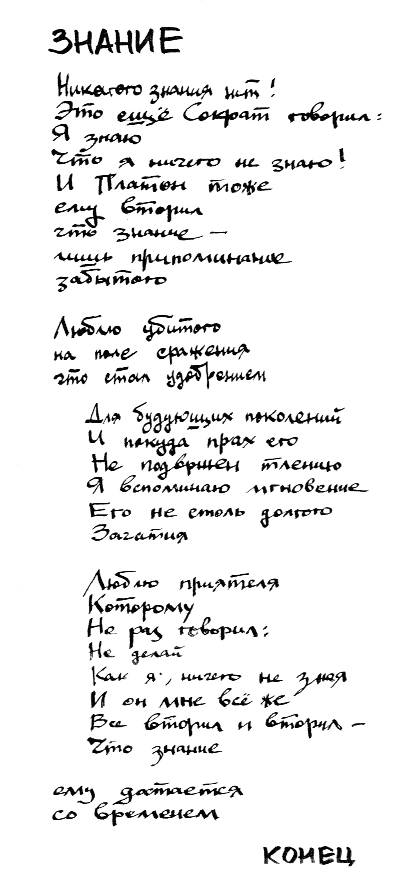 ЗНАНИЕ
Никакого знания нет!
Это ещё Сократ говорил:
Я знаю
Что я ничего не знаю!
И Платон тоже
ему вторил
что знание —
лишь припоминание
забытого
Люблю убитого
на поле сражения
что стал удобрением
Для будующих поколений
И покуда прах его
Не подвержен тлению
Я вспоминаю мгновение
Его не столь долгого
Зачатия
Люблю приятеля
Которому
Не раз говорил:
Не делай
Как я, ничего не зная
И он мне всё же
Все вторил и вторил —
Что знание
ему дотается
со временем
КОНЕЦ